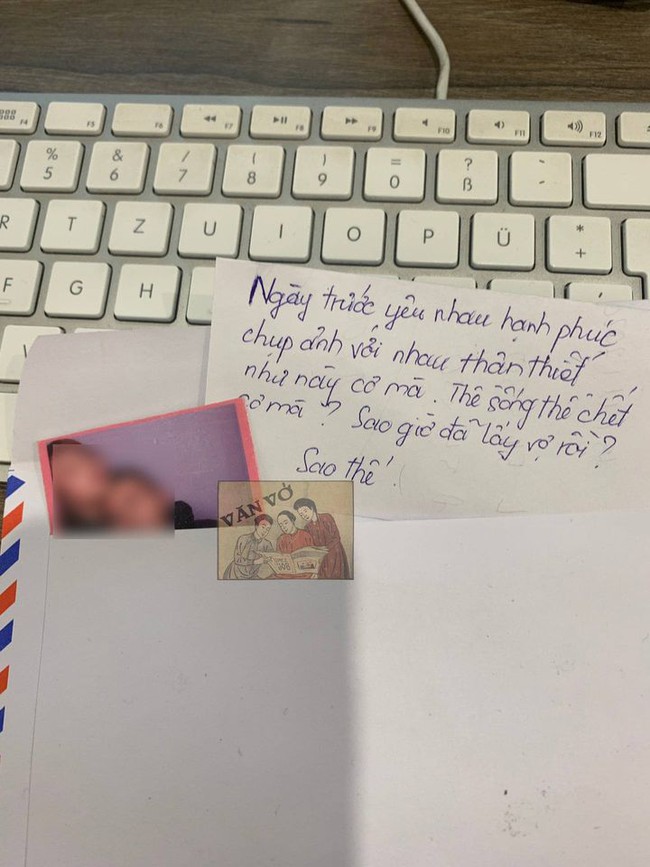 F4 F5 F6 F7 F8 F9 F10 F11 F12
% & / ( ) = ? -
5 6 7 8 9 0 ß -
R T Z U I O P Ü * +
F G H
Ngày trước yêu nhau hạnh phúc
chụp ảnh với nhau thân thiết
như này cơ mà. Thề sống thề chết
cơ mà? Sao giờ đã lấy vợ rồi?
Sao thế.
VĂN VỞ